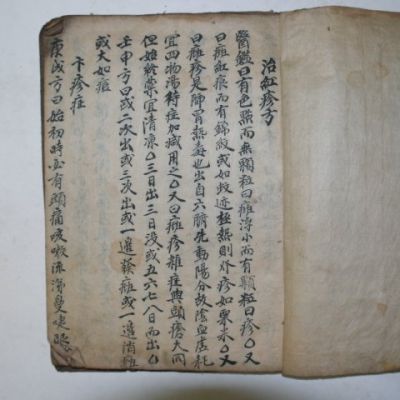 治紅疹方
醫鑑曰有色點而無顆粒曰癍浮小而有顆粒曰疹○又
曰癍紅痕而有錦紋或如蚊迹極熱則發疹如粟米○又
曰癍疹是肺胃熱毒也出自六腑先動陽分故陰血虛耗
宜四物湯待症加減用之○又曰癍疹雜症與頭瘡大同
但始終藥宜清凉○三日出三日没或五六七八日而出○
壬申方曰或二次出或三次出或一邊發癍或一邊消癍
或大如痘
卞疹症
庚戌方曰始初時必有頭痛咳嗽流涕